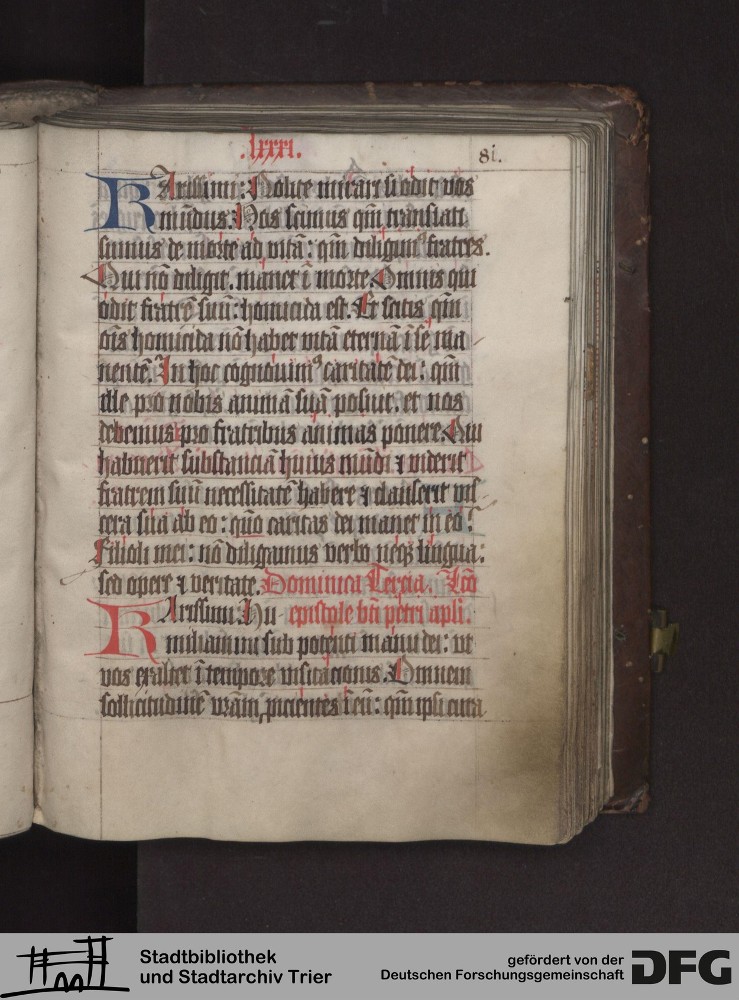 .lxxxi.
81.
KArissimi: Nolite mirari si odit vos
mūdus. Nos scimus qm̄ translati
sumus de morte ad vitā: qm̄ diligimꝰ fratres.
Qui nō diligit. manet ī morte. Omnis qui
odit fratrē suū: homicida est. Et scitis qm̄
oīs homicida nō habet vitā eternā ī se ma
nentē. In hoc cognouimꝰ caritatē dei: qm̄
ille pro nobis animā suā posuit. et nos
debemus pro fratribus animas ponere. Qui
habuerit substanciā huius mūdi ⁊ viderit
fratrem suū necessitatē habere ⁊ clauserit vis
cera sua ab eo: quō caritas dei manet in eo?
Filioli mei: nō diligamus verbo neqꝫ lingua:
sed opere ⁊ veritate. Dominica Tercia. Lc̄o
KArissimi. Hu epistole bt̄i petri apli.
miliamini sub potenti manu dei: vt
vos exaltet ī tempore visitacionis. Omnem
sollicitudinē vr̄am, proicientes ī eū: qm̄ ipsi cura
Stadtbibliothek
und Stadtarchiv Trier
gefördert von der
Deutschen Forschungsgemeinschaft
DFG